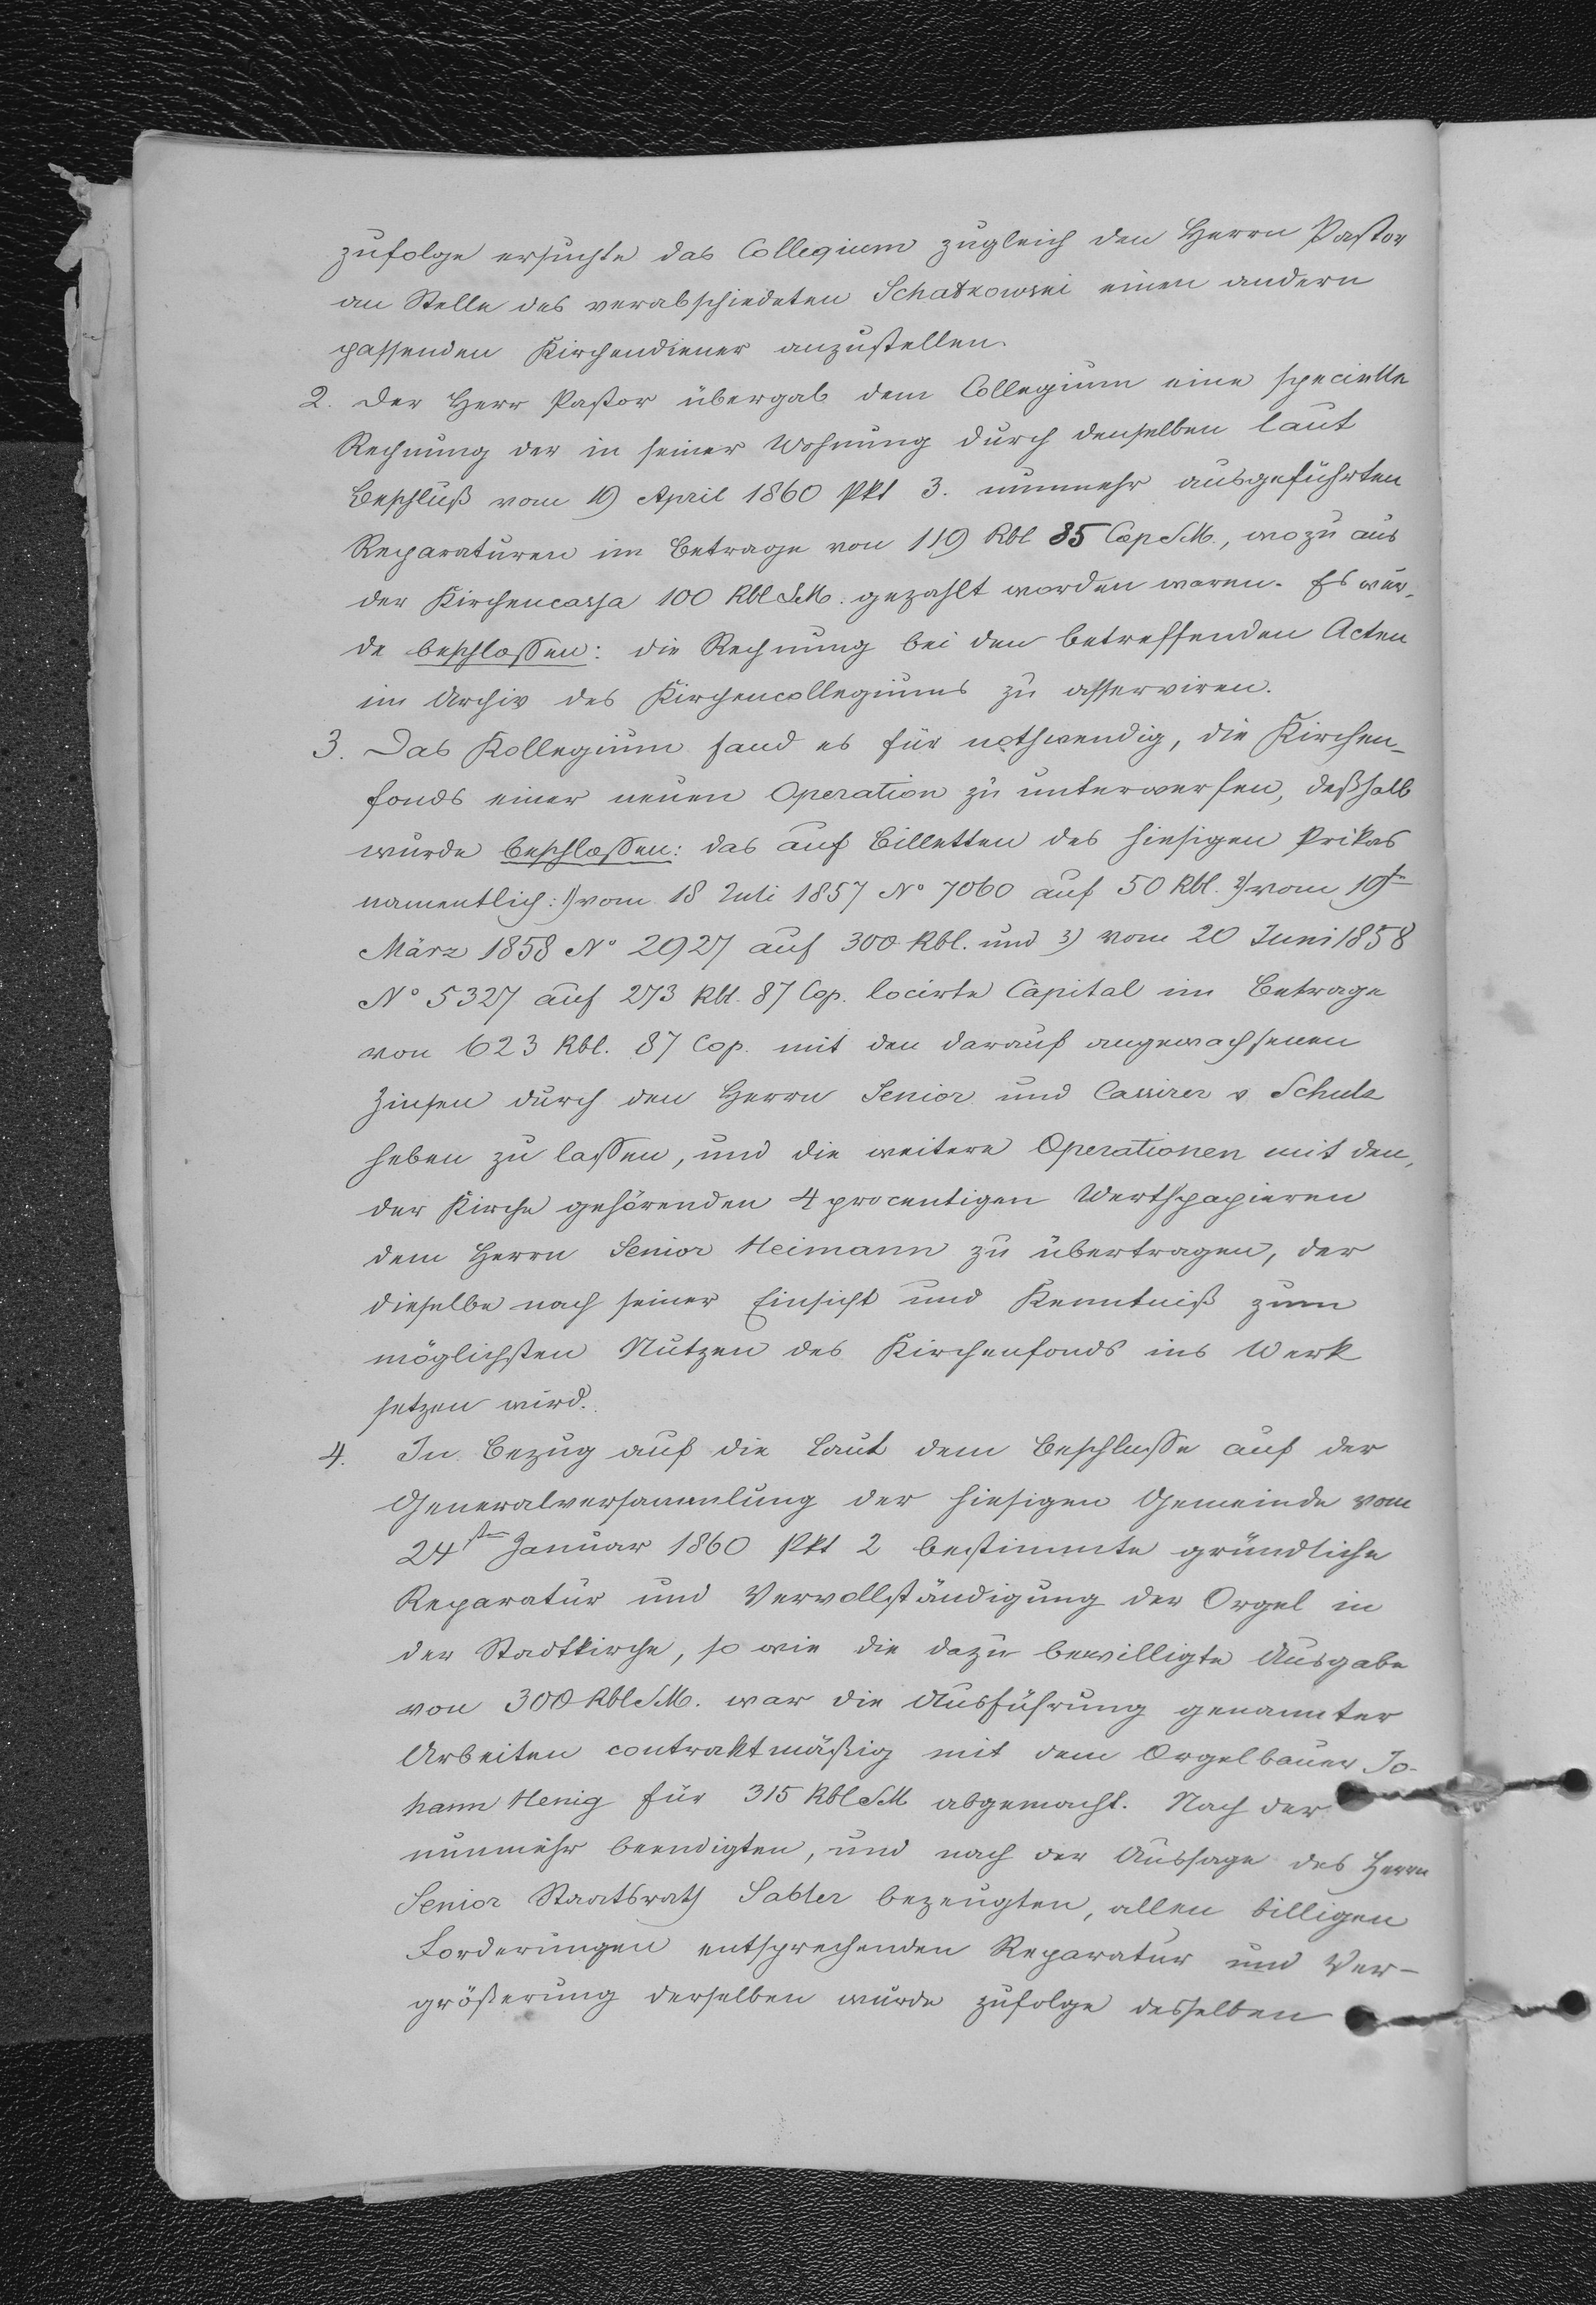 zufolge ersuchte das Collegium zugleich den Herrn Pastor
an Stelle des verabschiedeten Schatkowski einen andern
passenden Kirchendiener anzustellen.
2. Der Herr Pastor übergab dem Collegium eine specielle
Rechnung der in seiner Wohnung durch denselben laut
Beschluß vom 19 April 1860 Pkt 3. nunmehr ausgeführten
Reparaturen im Betrage von 119 Rbl 85 Cop SM., wozu aus
der Kirchencassa 100 Rbl SM. gezahlt worden waren. Es wur-
de beschlossen: die Rechnung bei den betreffenden Acten
im Archiv des Kirchencollegiums zu asserviren.
3. Das Kollegium fand es für nothwendig, die Kirchen-
fonds einer neuen Operation zu unterwerfen, deßhalb
wurde beschlossen: das auf Billetten des hiesigen Prikas
namentlich: 1) vom 18 Juli 1857 No 7060 auf 50 Rbl. 2) vom 19ten
März 1858 No 2927 auf 300 Rbl. und 3) vom 20 Juni 1858
No 5327 auf 273 Rbl. 87 Cop. locirte Capital im Betrage
von 623 Rbl. 87 Cop. mit den darauf angewachsenen
Zinsen durch den Herrn Senior und Cassirer v Schulz
heben zu lassen, und die weitere Operationen mit den,
der Kirche gehörenden 4 procentigen Werthpapieren
dem Herrn Senior Heimann zu übertragen, der
dieselbe nach seiner Einsicht und Kenntniß zum
möglichsten Nutzen des Kirchenfonds ins Werk
setzen wird.
4. In Bezug auf die laut dem Beschlusse auf der
Generalversammlung der hiesigen Gemeinde vom
24sten Januar 1860 Pkt 2 bestimmte gründliche
Reparatur und Vervollständigung der Orgel in
der Stadtkirche, so wie die dazu bewilligte Ausgabe
von 300 Rbl SM. war die Ausführung genannter
Arbeiten contraktmäßig mit dem Orgelbauer Jo-
hann Henig für 315 Rbl SM abgemacht. Nach der
nunmehr beendigten, und nach der Aussage des Herrn
Senior Staatsrath Sabler bezeugten, allen billigen
Forderungen entsprechenden Reparatur und Ver-
größerung derselben wurde zufolge desselben